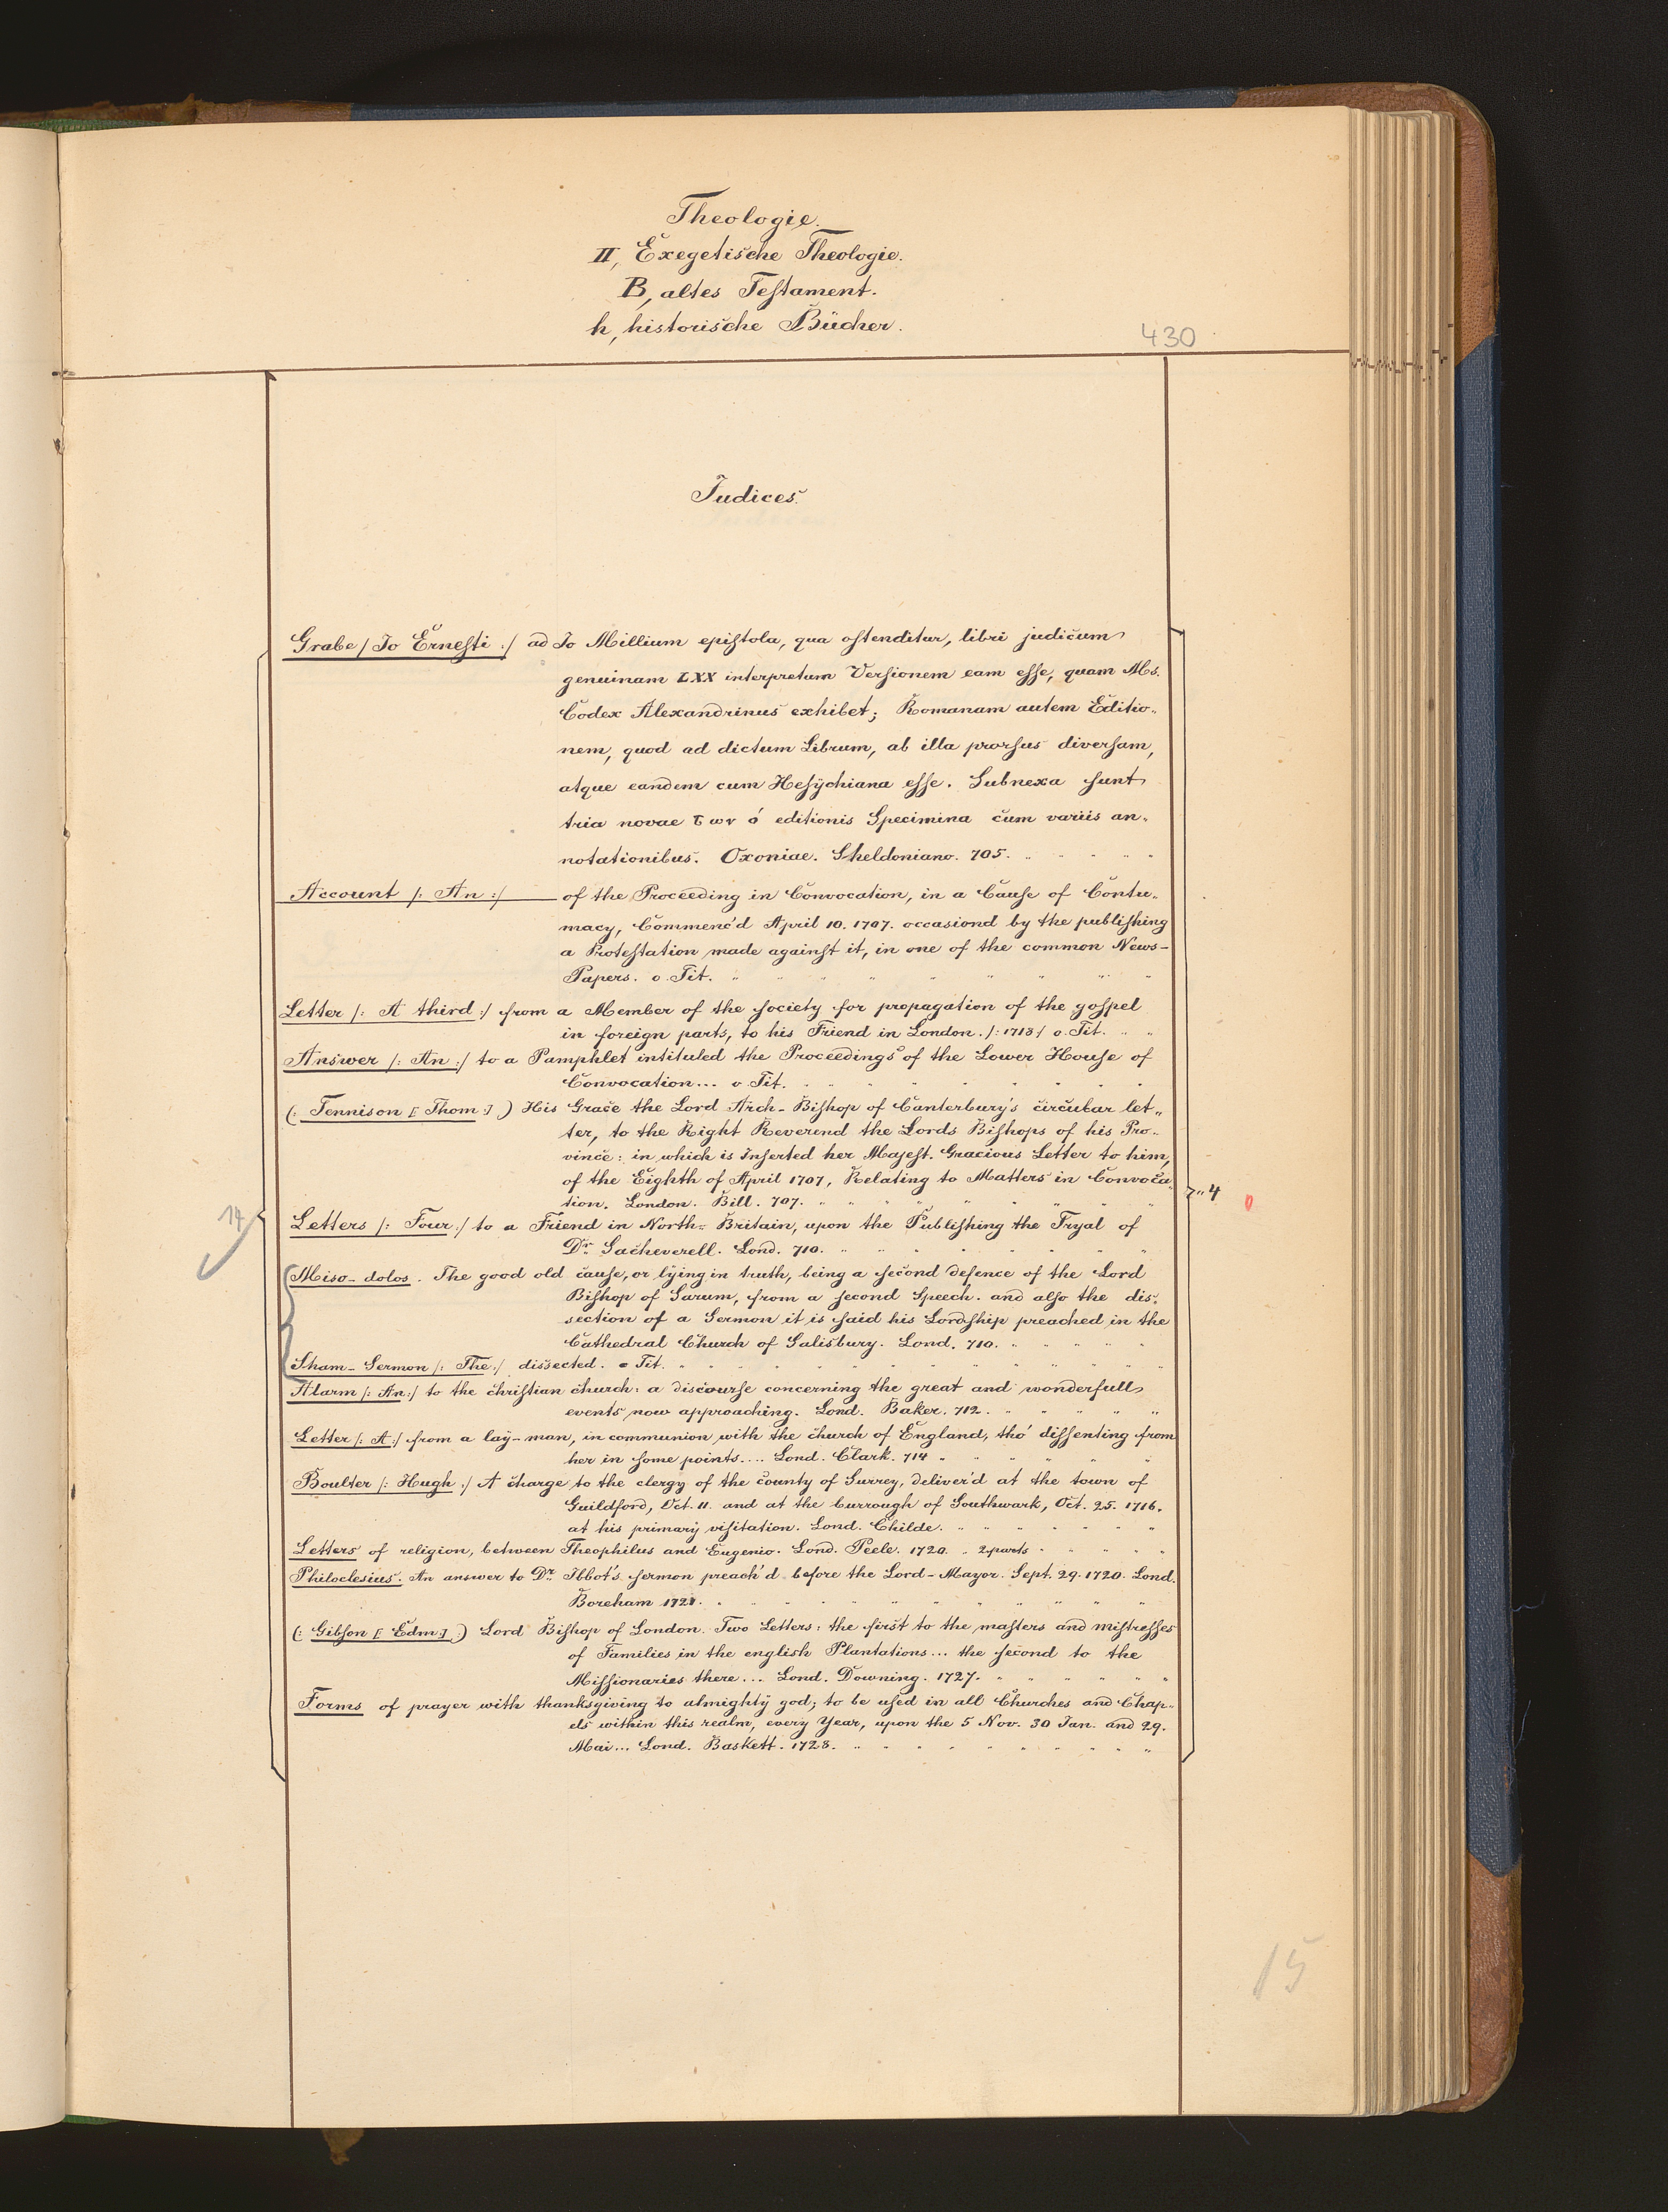 Theologie.
II, Exegetische Theologie.
B, altes Testament.
h, historische Bücher.
430
Judices.
Grabe /: Jo Ernesti :/ ad Jo Millium epistola, qua ostenditur, libri judicum
genuinam LXX interpretum Versionem eam esse, quam Ms.
Codex Alexandrinus exhibet; Romanam autem Editio„
nem, quod ad dictum Librum, ab illa prorsus diversam,
atque eandem cum Hesychiana esse. Subnexa sunt
tria novae των ό editionis Specimina cum variis an„
notationibus. Oxoniae. Sheldoniano. 705.
Account /: An :/ of the Proceeding in Convocation, in a Cause of Contu„
macy, Commenc'd April 10. 1707. occasiond by the publishing
a Protestation made against it, in one of the common News-
Papers. o. Tit.
Letter /: A third :/ from a Member of the society for propagation of the gospel
in foreign parts, to his Friend in London. /: 1718 / o. Tit.
Answer /: An :/ to a Pamphlet intituled the Proceedings of the Lower House of
Convocation... o Tit.
(: Tennison [: Thom :] ) His Grace the Lord Arch-Bishop of Canterbury's circular let„
ter, to the Right Reverend the Lords Bishops of his Pro„
vince: in which is Inserted her Majest. Gracious Letter to him,
of the Eighth of April 1707, Relating to Matters in Convoca„
tion. London. Bill. 707.
„4
0
14
Letters /: Four :/ to a Friend in North-Britain, upon the Publishing the Tryal of
Dr. Sacheverell. Lond. 710.
Miso-dolos. The good old cause, or lying in truth, being a second defence of the Lord
Bishop of Sarum, from a second Speech. and also the dis„
section of a Sermon it is said his Lordship preached in the
Cathedral Church of Salisbury. Lond. 710.
Sham-Sermon /: The :/ dissected. o Tit.
Alarm /: An :/ to the christian church: a discourse concerning the great and wonderfull
events now approaching. Lond. Baker. 712.
Letter /: A :/ from a lay-man, in communion with the church of England, tho' dissenting from
her in some points.... Lond. Clark. 714
Boulter /: Hugh :/ A charge to the clergy of the county of Surrey, deliver'd at the town of
Guildford, Oct. 11. and at the burrough of Southwark, Oct. 25. 1716.
at his primary visitation. Lond. Childe.
Letters of religion, between Theophilus and Eugenio. Lond. Peele. 1720. 2 parts
Philoclesius. An answer to Dr. Ibbot's sermon preach'd before the Lord-Mayor. Sept. 29. 1720. Lond.
Boreham 1721.
(: Gibson [: Edm :] :) Lord Bishop of London. Two Letters: the first to the masters and mistresses
of Families in the english Plantations... the second to the
Missionaries there... Lond. Downing. 1727.
Forms of prayer with thanksgiving to almighty god; to be used in all Churches and Chap„
els within this realm, every Year, upon the 5 Nov. 30 Jan. and 29.
Mai... Lond. Baskett. 1728.
15